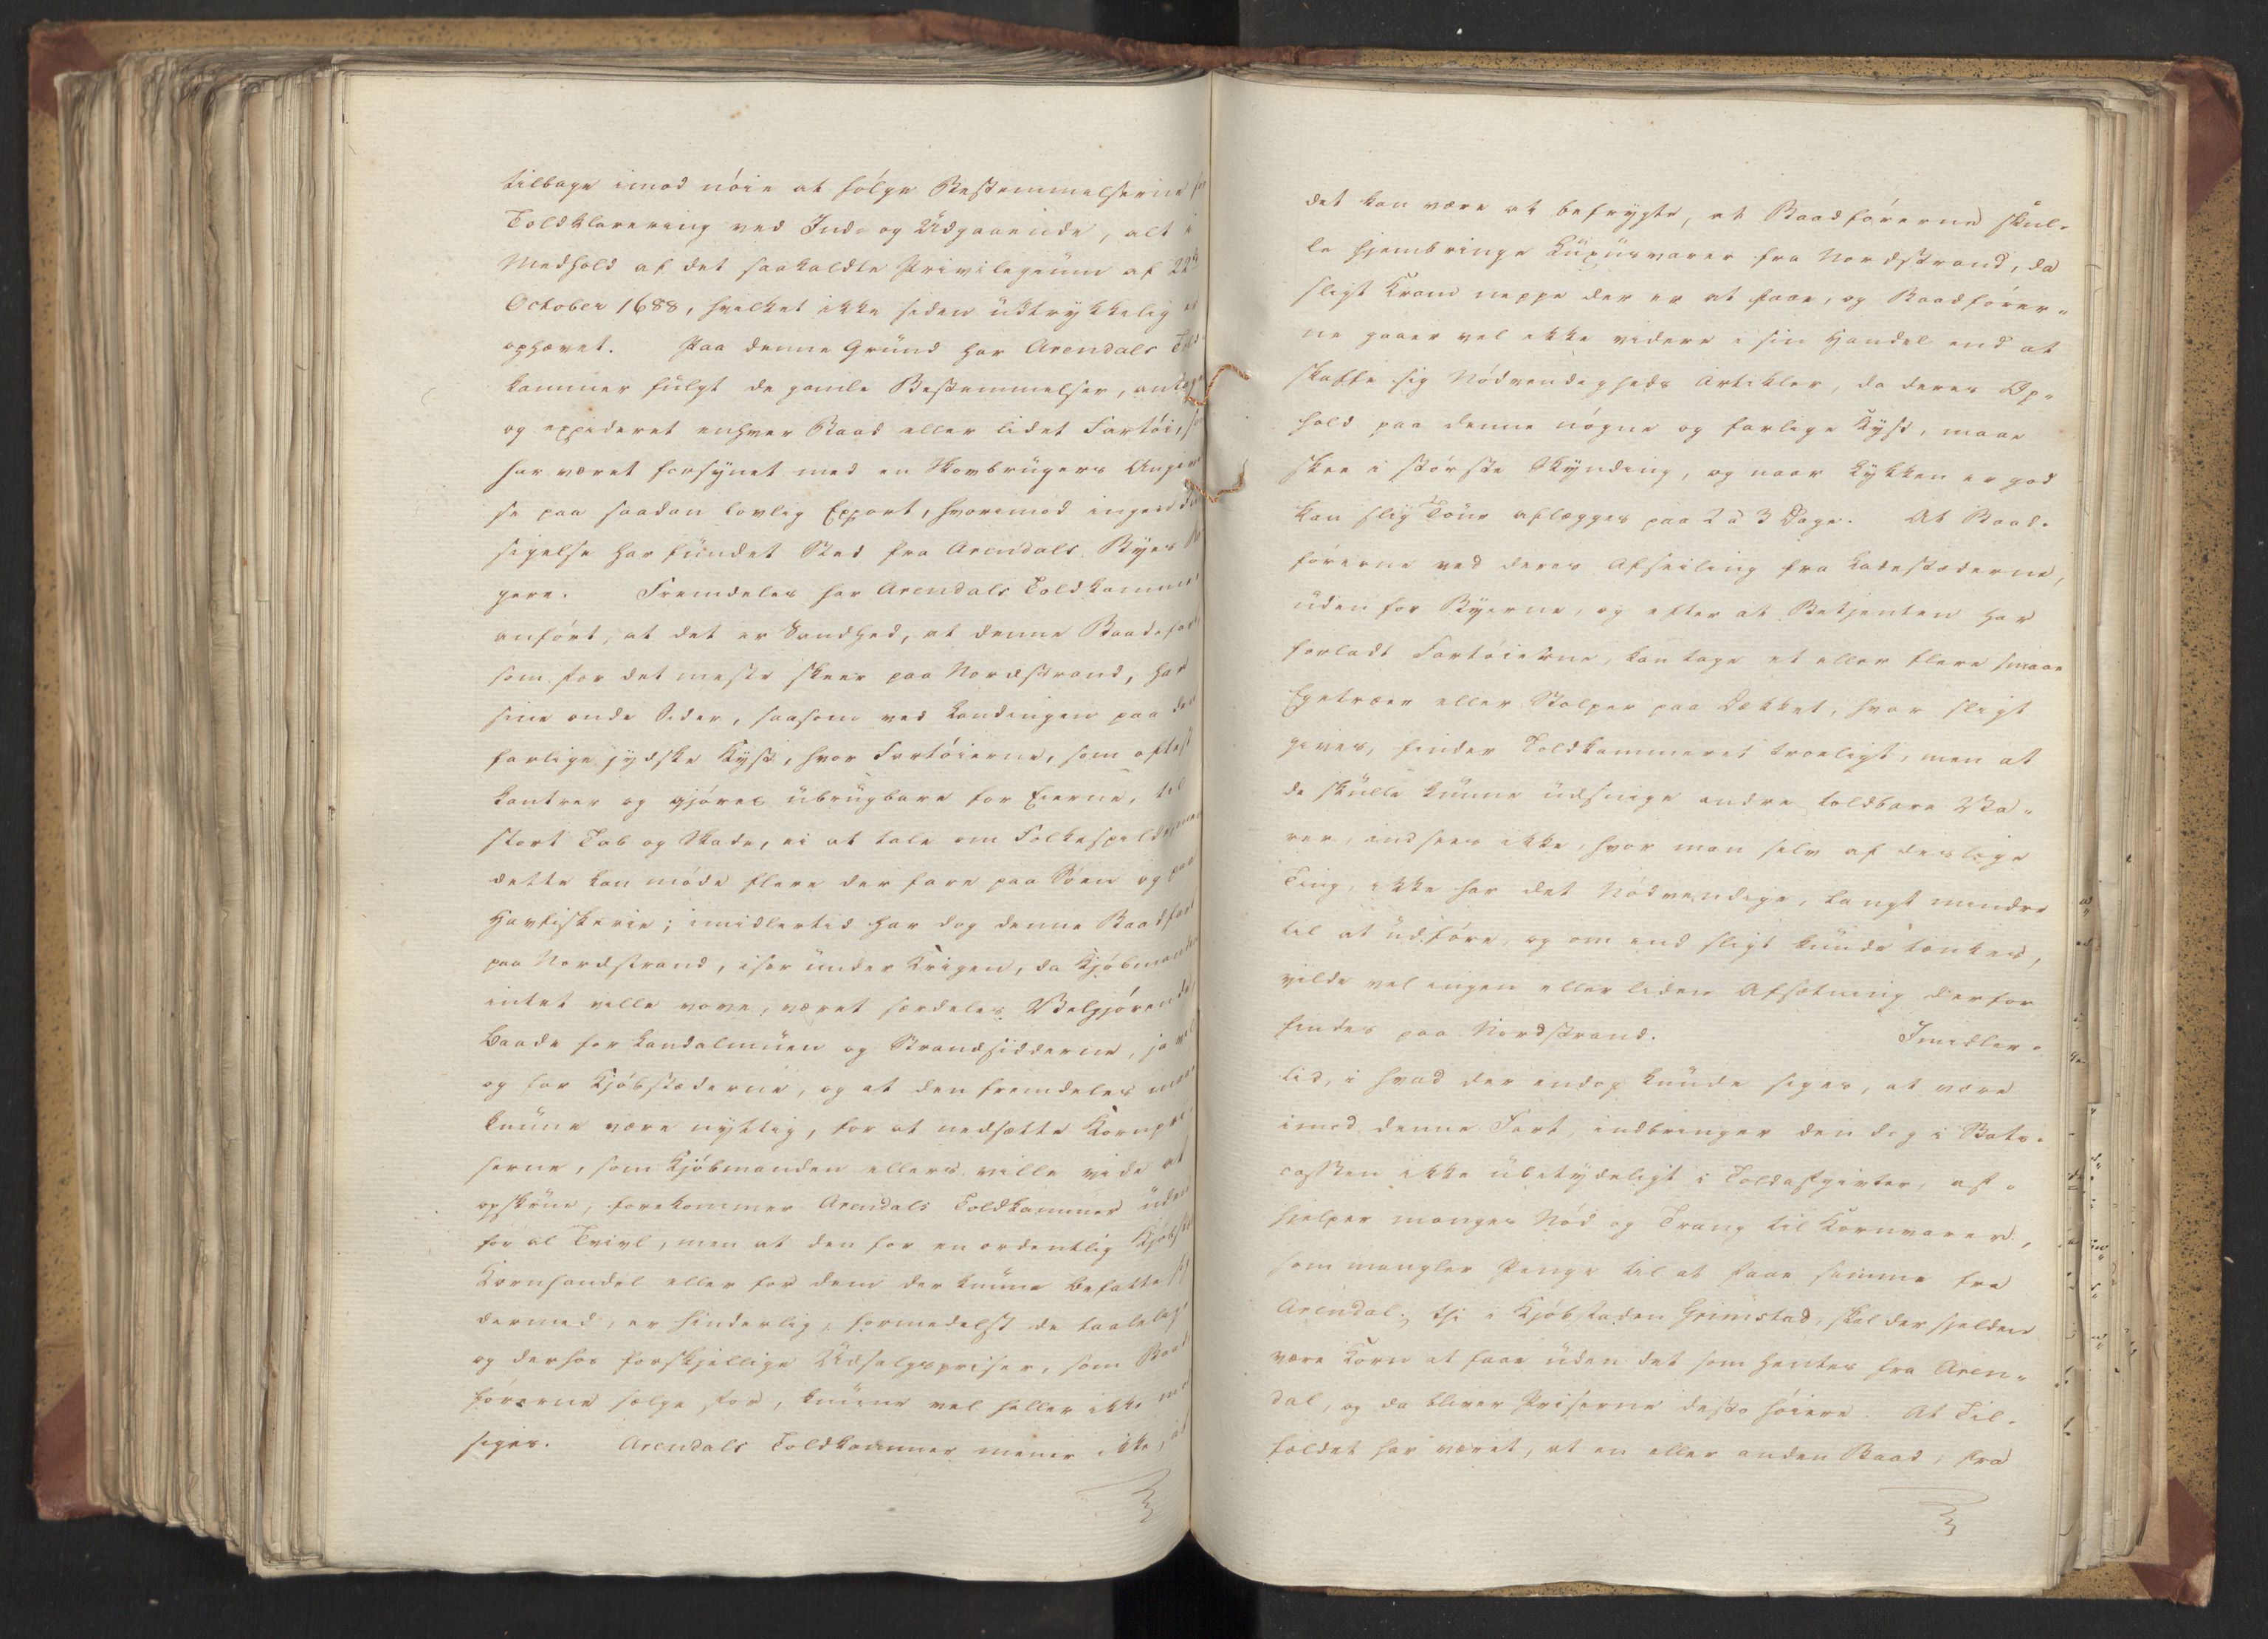 tilbage imod nøie at følge Bestemmelserne for
Toldklarering ved Ind- og Udgaaende, alt i
Medhold af det saakaldte Privilegium af 22de
October 1688, hvilket ikke siden udtrykkelig er
ophævet. Paa denne Grund har Arendals Told-
kammer fulgt de gamle Bestemmelser,
og expederet enhver Baad eller lidet Fartøi, som
har været forsynet med en Skovbrugers Angivel-
se paa saadan lovlig Export, hvorimod ingen
sigelse har fundet Sted fra Arendals Byes Bor-
gere. Fremdeles har Arendals Toldkammer
anført, at det er Sandhed, at denne Baadefart
som for det meste skeer paa Nordstrand, har
sine onde Sider, saasom ved Landingen paa den
farlige jydske Kyst, hvor Fartøierne, som oftest
kantrer og gjøres ubrugbare for Eierne, til
stort Tab og Skade, ei at tale om Folkespilde, men
dette kan møde flere der fare paa Søen og paa
Havfiskerie; imidlertid har dog denne Baadfart
paa Nordstrand, især under Krigen, da Kjøbmanden
intet ville vove, været særdeles Velgjørende,
baade for Landalmuen og Strandsidderne, ja vel
og for Kjøbstæderne, og at den fremdeles maa
kunne være nyttig, for at nedsætte Kornpri-
serne, som Kjøbmanden ellers ville vide at
opskrue, forekommer Arendals Toldkammer uden
for al Tvivl, men at den for en ordentlig Kjøbsted
Kornhandel eller for dem der kunne befatte sig
dermed, er hinderlig, formedelst de taaleligst
og derhos forskjellige Udsalgspriser, som Baad-
førerne sælge for, kunne vel heller ikke mod-
siges. Arendals Toldkammer mener ikke, at
det kan være at befrygte, at Baadførerne skul-
le hjembringe Luxusvarer fra Nordstrand, da
sligt Kram neppe der er at faae, og Baadfører-
ne gaaer vel ikke videre i sin Handel end at
skaffe sig Nødvendigheds Artikler, da deres Op-
hold paa denne nøgne og farlige Kyst, maae
skee i største Skynding, og naar Lykken er god
kan slig Tour aflægges paa 2 à 3 Dage. At Baad-
førerne ved deres Afseiling fra Ladestæderne,
uden for Byerne, og efter at Betjenten har
forladt Fartøierne, kan tage et eller flere smaae
Egetræer eller Stolper paa Dækket, hvor sligt
gives, finder Toldkammeret troeligt, men at
de skulle kunne udsnige andre toldbare Va-
rer, indsees ikke, hvor man selv af deslige
Ting, ikke har det Nødvendige, langt mindre
til at udføre, og om end sligt kunde tænkes,
vilde vel ingen eller liden Afsætning derfor
findes paa Nordstrand. Imidler-
tid, i hvad der endog kunde siges, at være
imod denne Fart, indbringer den dog i Stats-
cassen ikke ubetydeligt i Toldafgivter, af-
hjelper manges Nød og Trang til Kornvarer,
som mangler Penge til at faae samme fra
Arendal; thi i Kjøbstaden Grimstad, skal der sjelden
være Korn at faae uden det som hentes fra Aren-
dal, og da bliver Priserne desto høiere. At Til-
fældet har været, at en eller anden Baad, fra